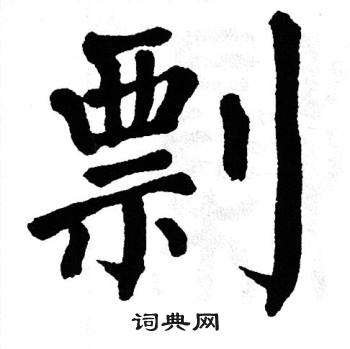 剽
词典网